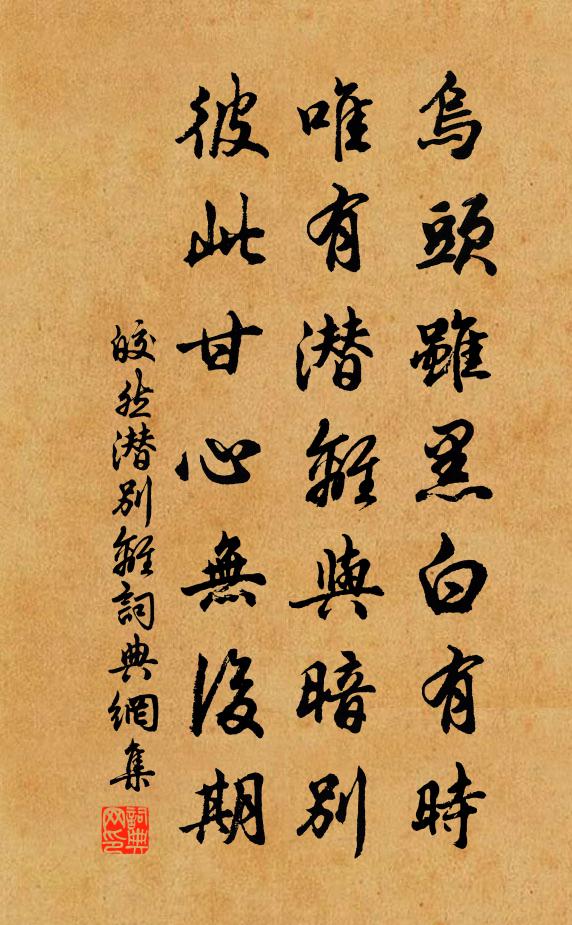 烏頭雖黑白有時
唯有潜離與暗别
彼此甘心無後期
皎然潜别離詞典網集
詞典网印